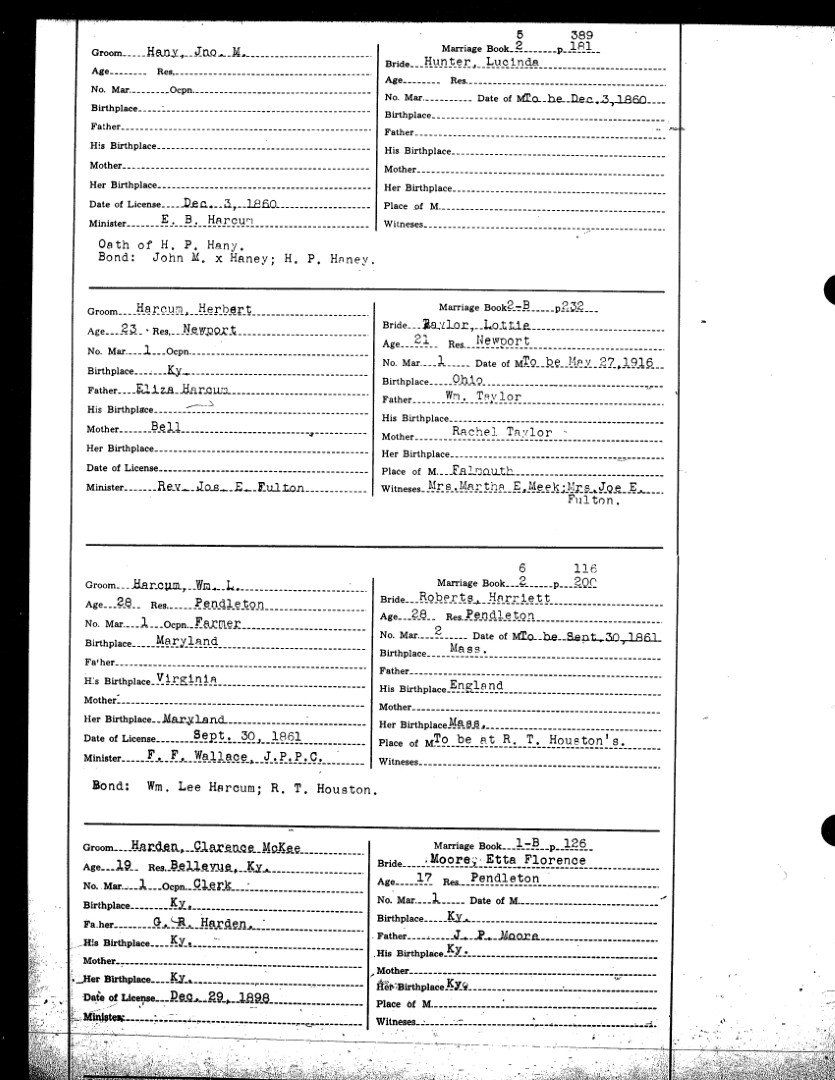 5 389
Groom Hany, Jno. M.
Age Res.
No. Mar. Ocpn.
Birthplace
Father
His Birthplace
Mother
Her Birthplace
Date of License Dec. 3, 1860
Minister E. B. Harcum
Marriage Book 2 p. 181
Bride Hunter, Lucinda
Age Res.
No. Mar. Date of M To be Dec. 3, 1860
Birthplace
Father
His Birthplace
Mother
Her Birthplace
Place of M.
Witnesses
Oath of H. P. Hany.
Bond: John M. x Haney; H. P. Haney.
Groom Harcum, Herbert
Age 23 Res. Newport
No. Mar. 1 Ocpn.
Birthplace Ky.
Father Eliza Harcum
His Birthplace
Mother Bell
Her Birthplace
Date of License
Minister Rev. Jos. E. Fulton
Marriage Book 2-B p 232
Bride Taylor, Lottie
Age 21 Res. Newport
No. Mar. 1 Date of M To be May 27, 1916
Birthplace Ohio
Father Wm. Taylor
His Birthplace
Mother Rachel Taylor
Her Birthplace
Place of M. Falmouth
Witnesses Mrs. Martha E. Meek; Mrs. Joe E.
Fulton.
6 116
Groom Harcum, Wm. L.
Age 28 Res. Pendleton
No. Mar. 1 Ocpn. Farmer
Birthplace Maryland
Father
His Birthplace Virginia
Mother
Her Birthplace Maryland
Date of License Sept. 30, 1861
Minister F. F. Wallace, J.P.P.C.
Marriage Book 2 p. 200
Bride Roberts, Harriett
Age 28 Res. Pendleton
No. Mar. 2 Date of M To be Sept. 30, 1861
Birthplace Mass.
Father
His Birthplace England
Mother
Her Birthplace Mass.
Place of M To be at R. T. Houston's.
Witnesses
Bond: Wm. Lee Harcum; R. T. Houston.
Groom Harden, Clarence McKee
Age 19 Res. Bellevue, Ky.
No. Mar. 1 Ocpn. Clerk
Birthplace Ky.
Father G. R. Harden.
His Birthplace Ky.
Mother
Her Birthplace Ky.
Date of License Dec. 29, 1898
Minister
Marriage Book 1-B p. 126
Bride Moore, Etta Florence
Age 17 Res. Pendleton
No. Mar. 1 Date of M.
Birthplace Ky.
Father J. P. Moore
His Birthplace Ky.
Mother
Her Birthplace Ky.
Place of M.
Witnesses